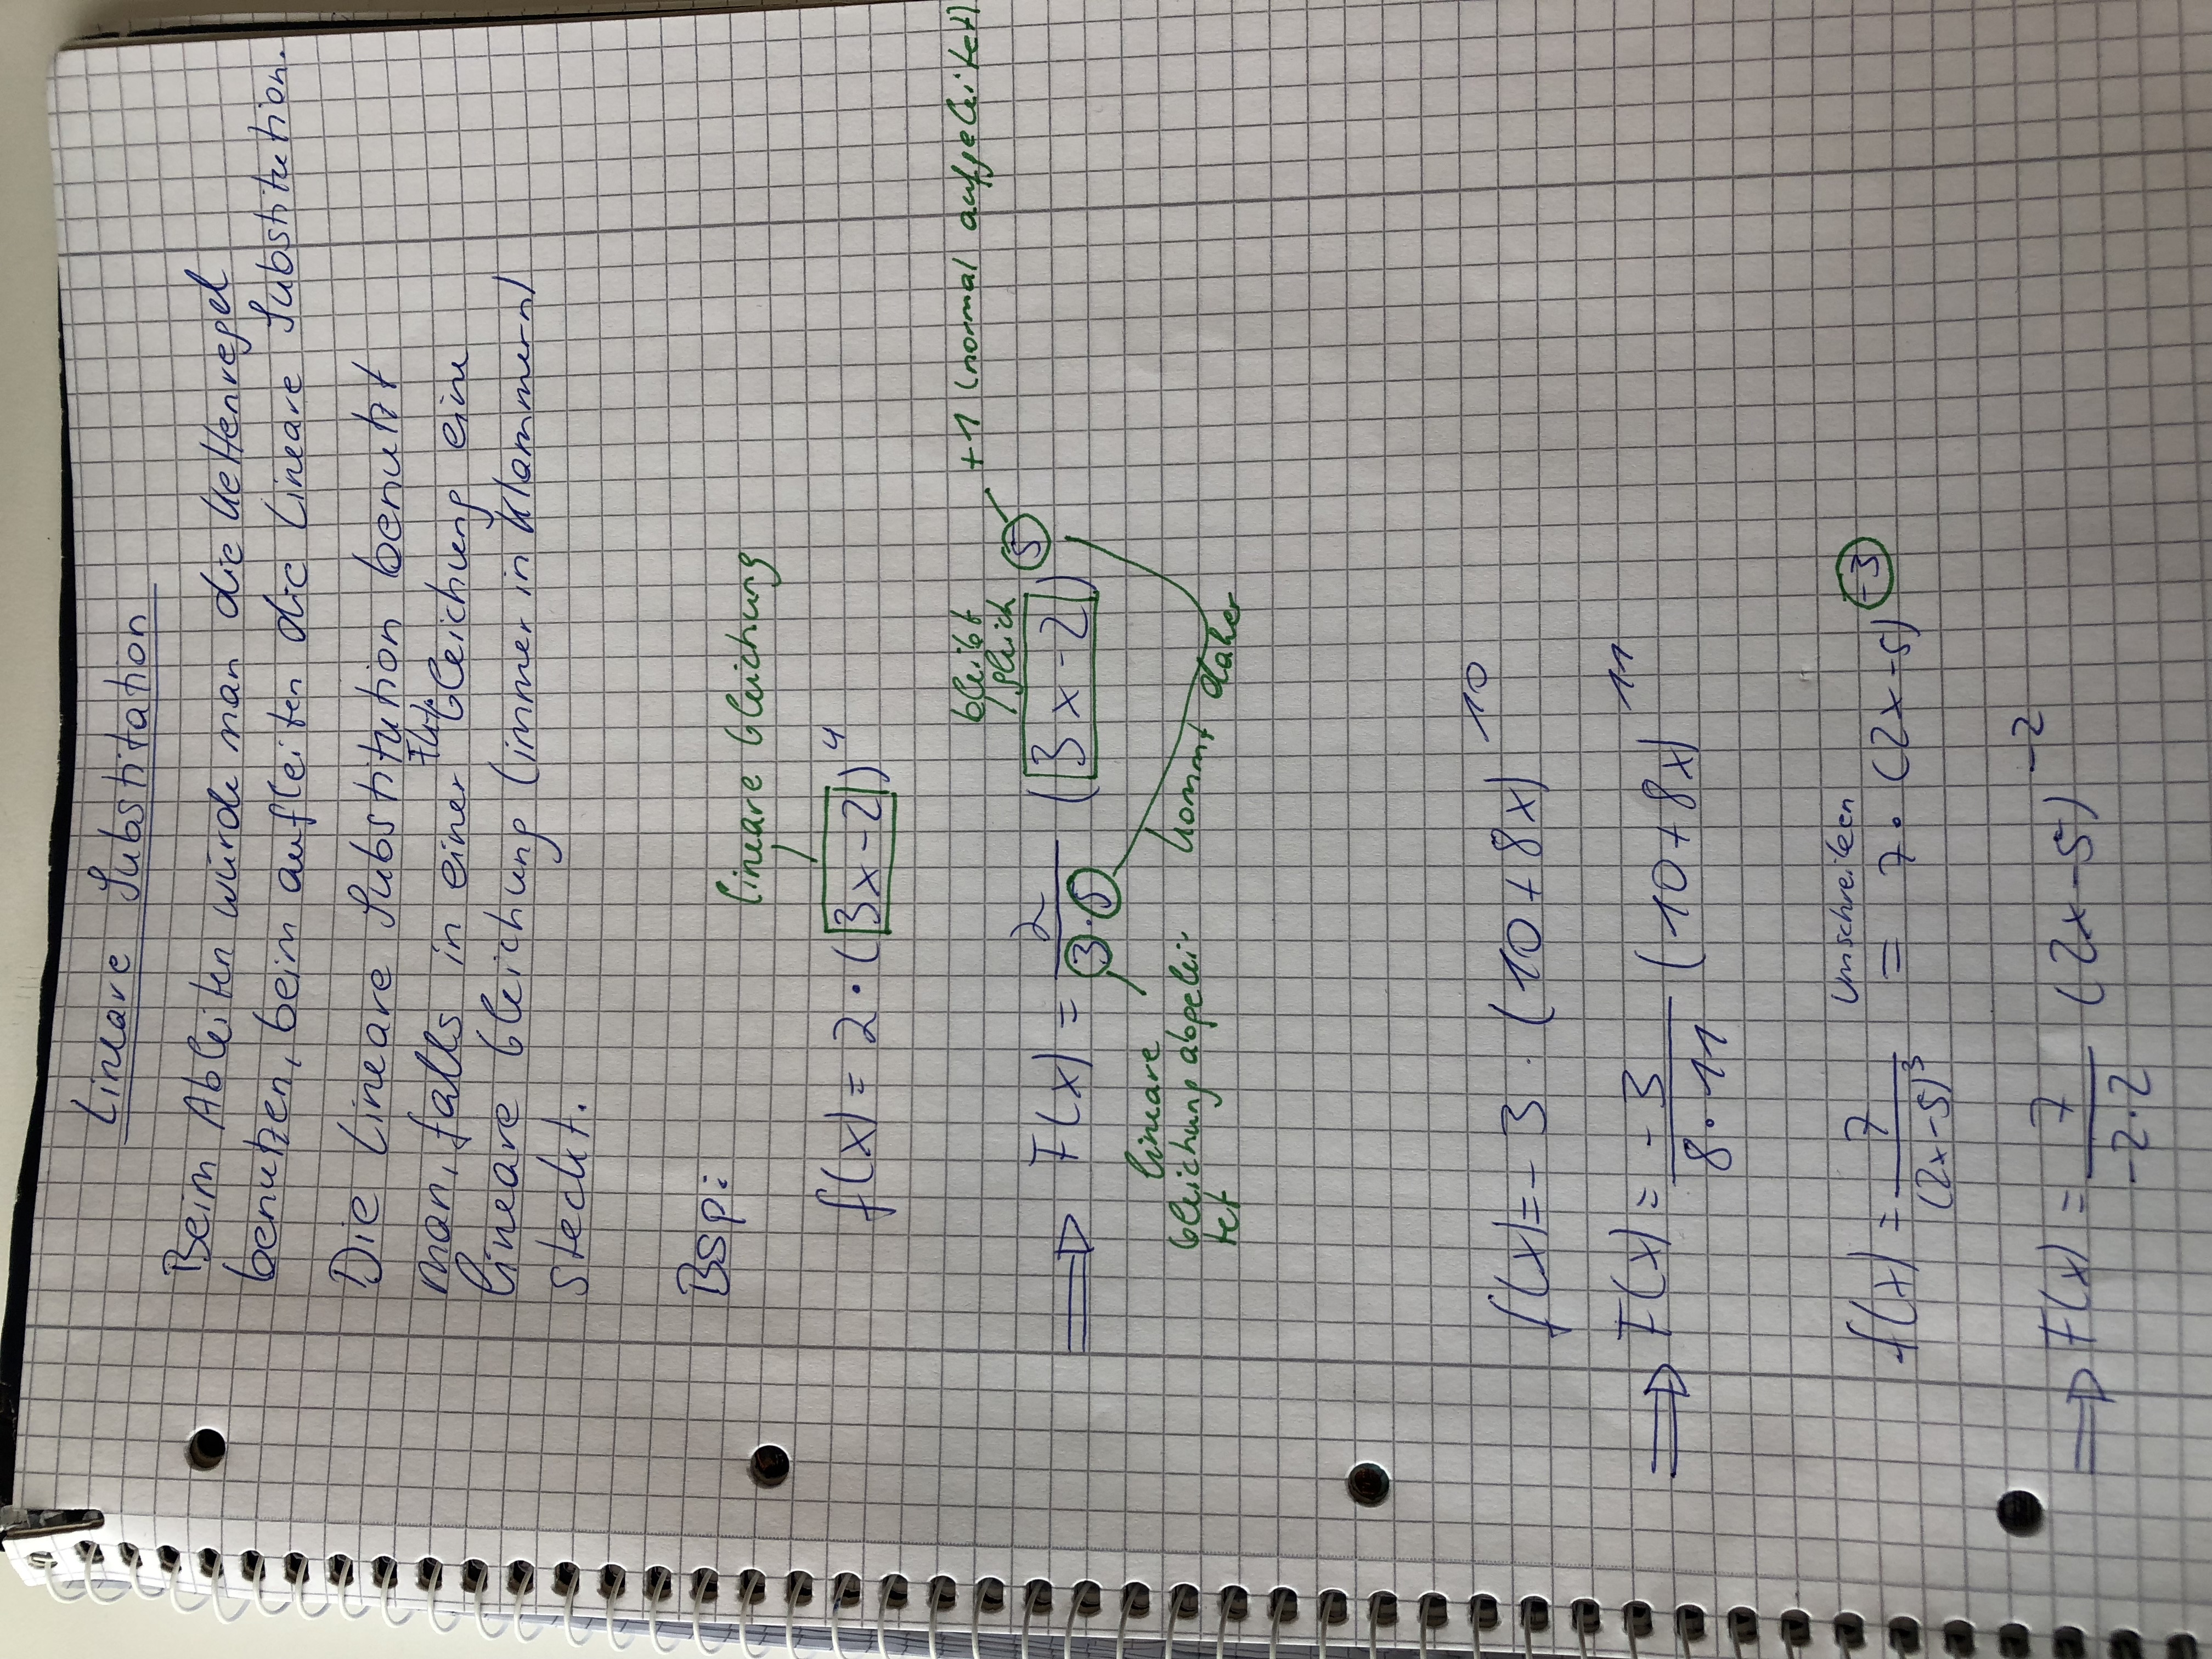 Lineare Substitution
Beim Ableiten würde man die Kettenregel
benutzen, beim aufleiten die Lineare Substitution.
Die Lineare Substitution benutzt
man, falls in einer Fkt. Gleichung eine
lineare Gleichung (immer in Klammern)
steckt.
Bsp:
lineare Gleichung
f(x) = 2 · (3x-2)⁴
bleibt gleich
+1 (normal aufgeleitet)
⇒ F(x) = 2/(3·5) (3x-2)⁵
lineare
Gleichung abgelei
tet
kommt daher
f(x) = - 3 · (10+8x)¹⁰
⇒ F(x) = - 3/(8·11) (10+8x)¹¹
umschreiben
f(x) = 7/(2x-5)³ = 7 · (2x-5)⁻³
⇒ F(x) = 7/(-2·2) (2x-5)⁻²